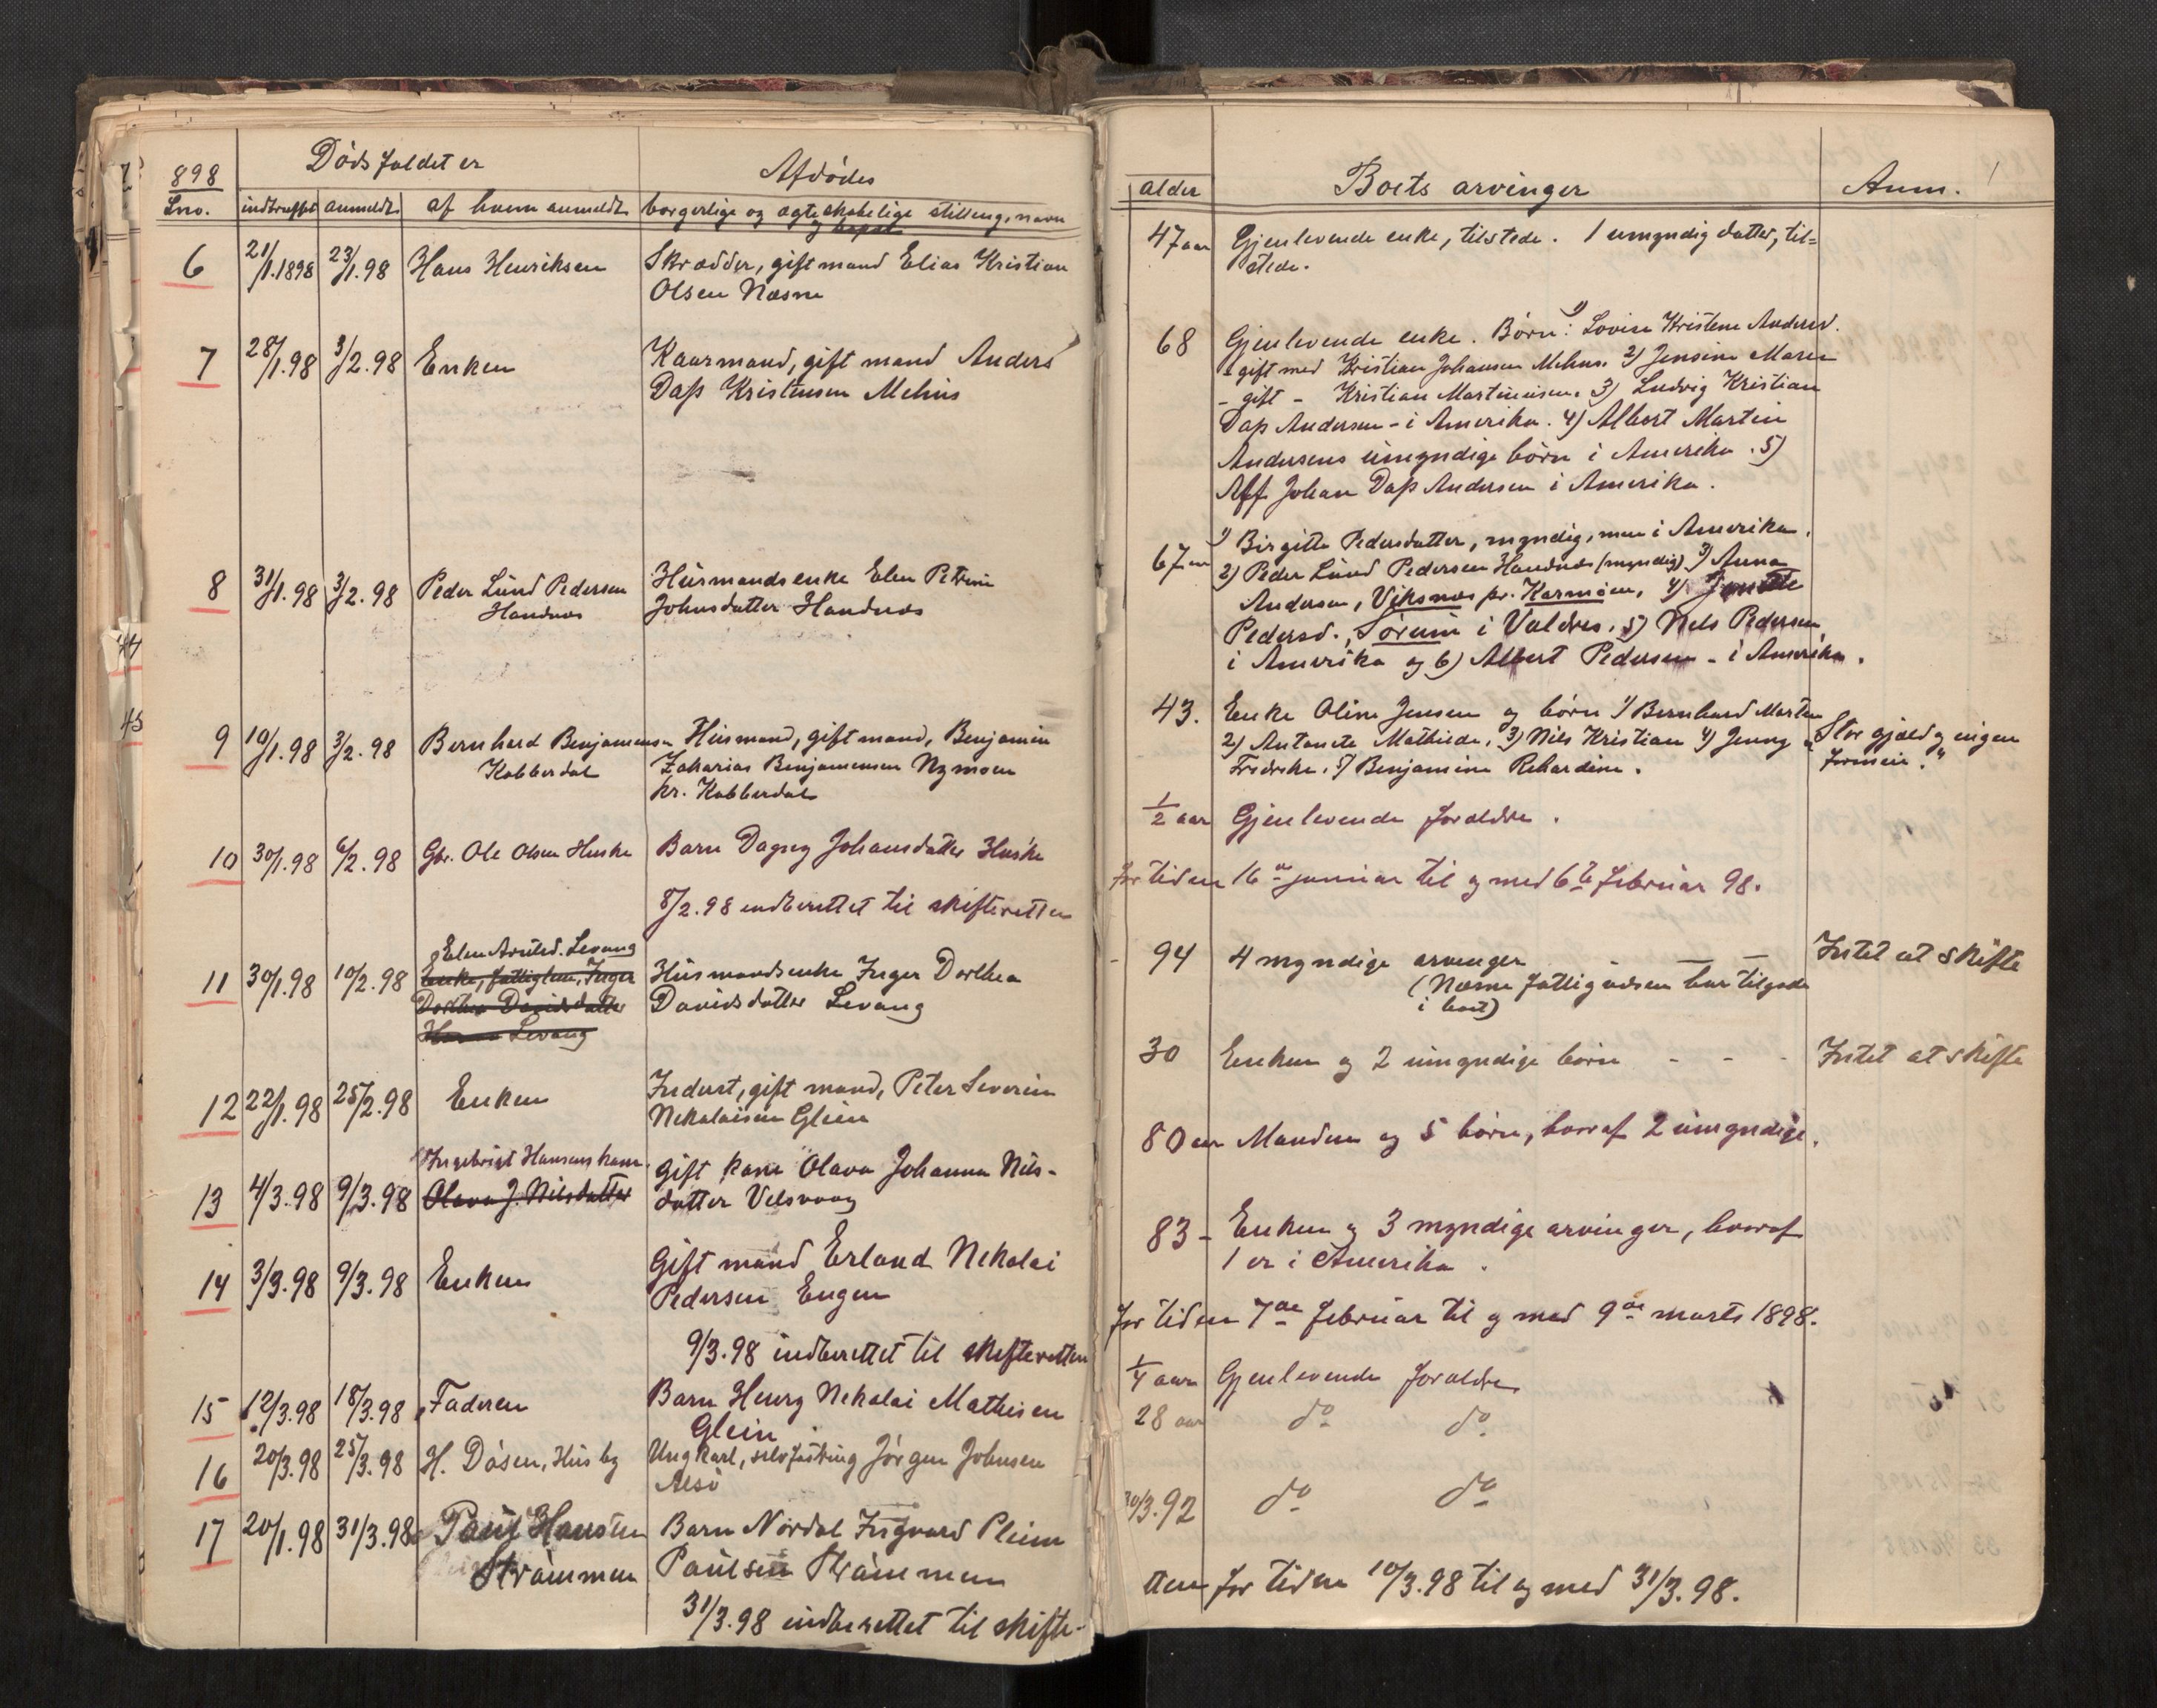 898
Dødsfaldet er
Afdødes
Lno.
indtruffet
anmeldt
af hvem anmeldt
borgerlige og ægteskabelige stilling, navn
og bopæl
6
21/1.1898
23/1.98
Hans Henriksen
Skrædder, gift mand Elias Kristian
Olsen Næsna
7
28/1.98
3/2.98
Enken
Kaarmand, gift mand Anders
Dass Kristensen Mehus
8
31/1.98
3/2.98
Peder Lund Pedersen
Handnæs
Husmandsenke Elen Petrine
Johnsdatter Handnæs
9
10/1.98
3/2.98
Bernhard Benjaminsen
Kobberdal
Husmand, gift mand, Benjamin
Zakarias Benjaminsen Nymoen
pr. Kobberdal
10
30/1.98
6/2.98
Gbr. Ole Olsen Huske
Barn Dagny Johansdatter Huske
8/2.98 indberettet til skifteretten
11
30/1.98
10/2.98
Elen Arntsd. Levang
Enke, fattiglem, Inger
Dorthea Davidsdatter
Levang
Husmandsenke Inger Dorthea
Davidsdatter Levang
12
22/1.98
25/2.98
Enken
Inderst, gift mand, Peter Severin
Nikolaisen Glein
13
4/3.98
9/3.98
Ingebrigt Hansens kone
Olava J. Nilsdatter
Gift kone Olava Johanna Nils-
datter Velsvaag
14
3/3.98
9/3.98
Enken
Gift mand Erland Nikolai
Pedersen Engen
9/3.98 indberettet til skifteretten
15
12/3.98
18/3.98
Faderen
Barn Henry Nikolai Mathisen
Glein
16
20/3.98
25/3.98
H. Døsen, Husby
Ungkarl, selvfostring Jørgen Johnsen
Alsø
17
20/1.98
31/3.98
Paul Hansen
Strømmen
Barn Nordal Ingvard Pleim
Paulsen Strømmen
31/3.98 indberettet til skifte-
alder
Boets arvinger
Anm.
47 aar
Gjenlevende enke, tilstede. 1 umyndig datter, til=
stede.
68
Gjenlevende enke. Børn: 1) Lovise Kristene Andersd.
- gift med Kristian Johansen Mehus. 2) Jensine Maren
- gift - Kristian Martinusen. 3) Ludvig Kristian
Dass Andersen - i Amerika. 4) Albert Martin
Andersens umyndige børn i Amerika. 5)
Aff Johan Dass Andersen i Amerika.
67 aar
1) Birgitte Pedersdatter, myndig, men i Amerika.
2) Peder Lund Pedersen Handnæs (myndig) 3) Anna
Andersen, Viksnæs pr. Karmøen, 4) Jonette
Pedersd., Sørum i Valdres. 5) Nels Pedersen
i Amerika og 6) Albert Pedersen - i Amerika.
43.
Enke Oline Jensen og børn 1) Bernhard Martin
2) Antonete Mathilde, 3) Nils Kristian 4) Jenny
Fredrike. 5) Benjamine Rikardine.
"Stor gjæld og ingen
formue."
1/2 aar
Gjenlevende forældre.
for tiden 16de januar til og med 6te februar 98.
94
4 myndige arvinger
(Næsne fattigvæsen har tilgode
i boet)
Intet at skifte
30
Enken og 2 umyndige børn - - -
Intet at skifte
80 aar
Manden og 5 børn, hvoraf 2 umyndige.
83 -
Enken og 3 myndige arvinger, hvoraf
1 er i Amerika.
for tiden 7de februar til og med 9de marts 1898.
1/4 aar
Gjenlevende forældre
28 aar
do do
30/3.92
do do
tten for tiden 10/3.98 til og med 31/3.98.